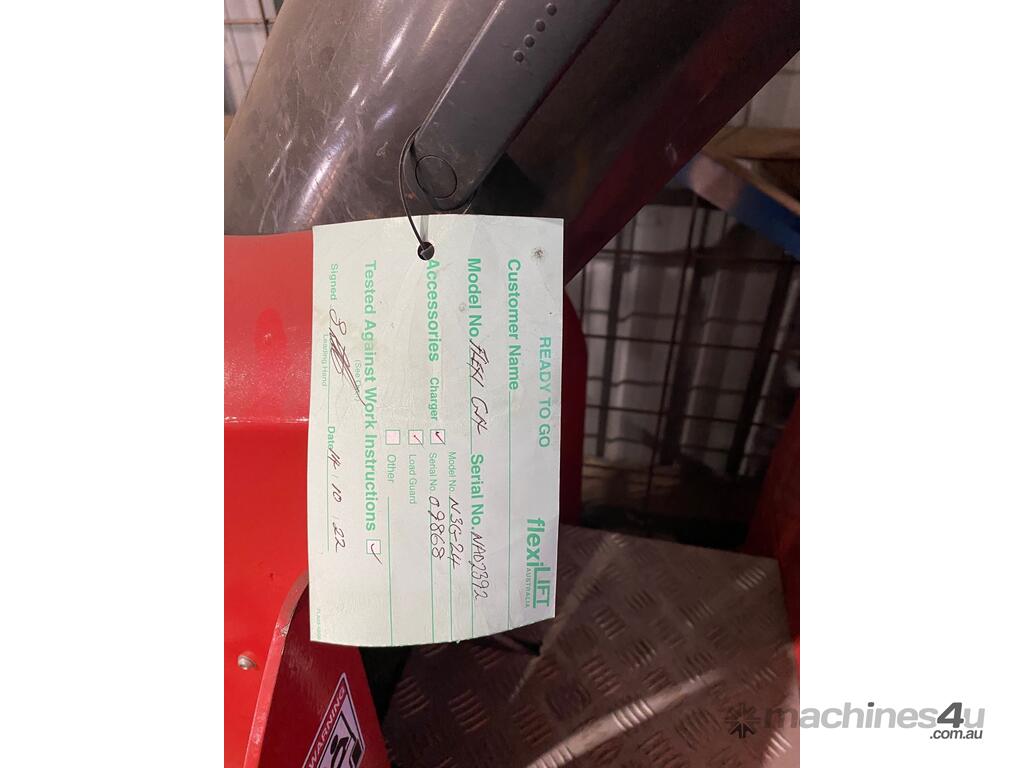 READY TO GO
flexiLIFT
AUSTRALIA
Customer Name
Model No. FLEXI Serial No. NA02392
Accessories Charger ✓ Model No. N3G-24
Serial No. 09868
✓ Load Guard
Other
Tested Against Work Instructions ✓
Signed
Leading Hand
Date 14 / 10 / 22
WARNING
machines4u
.com.au